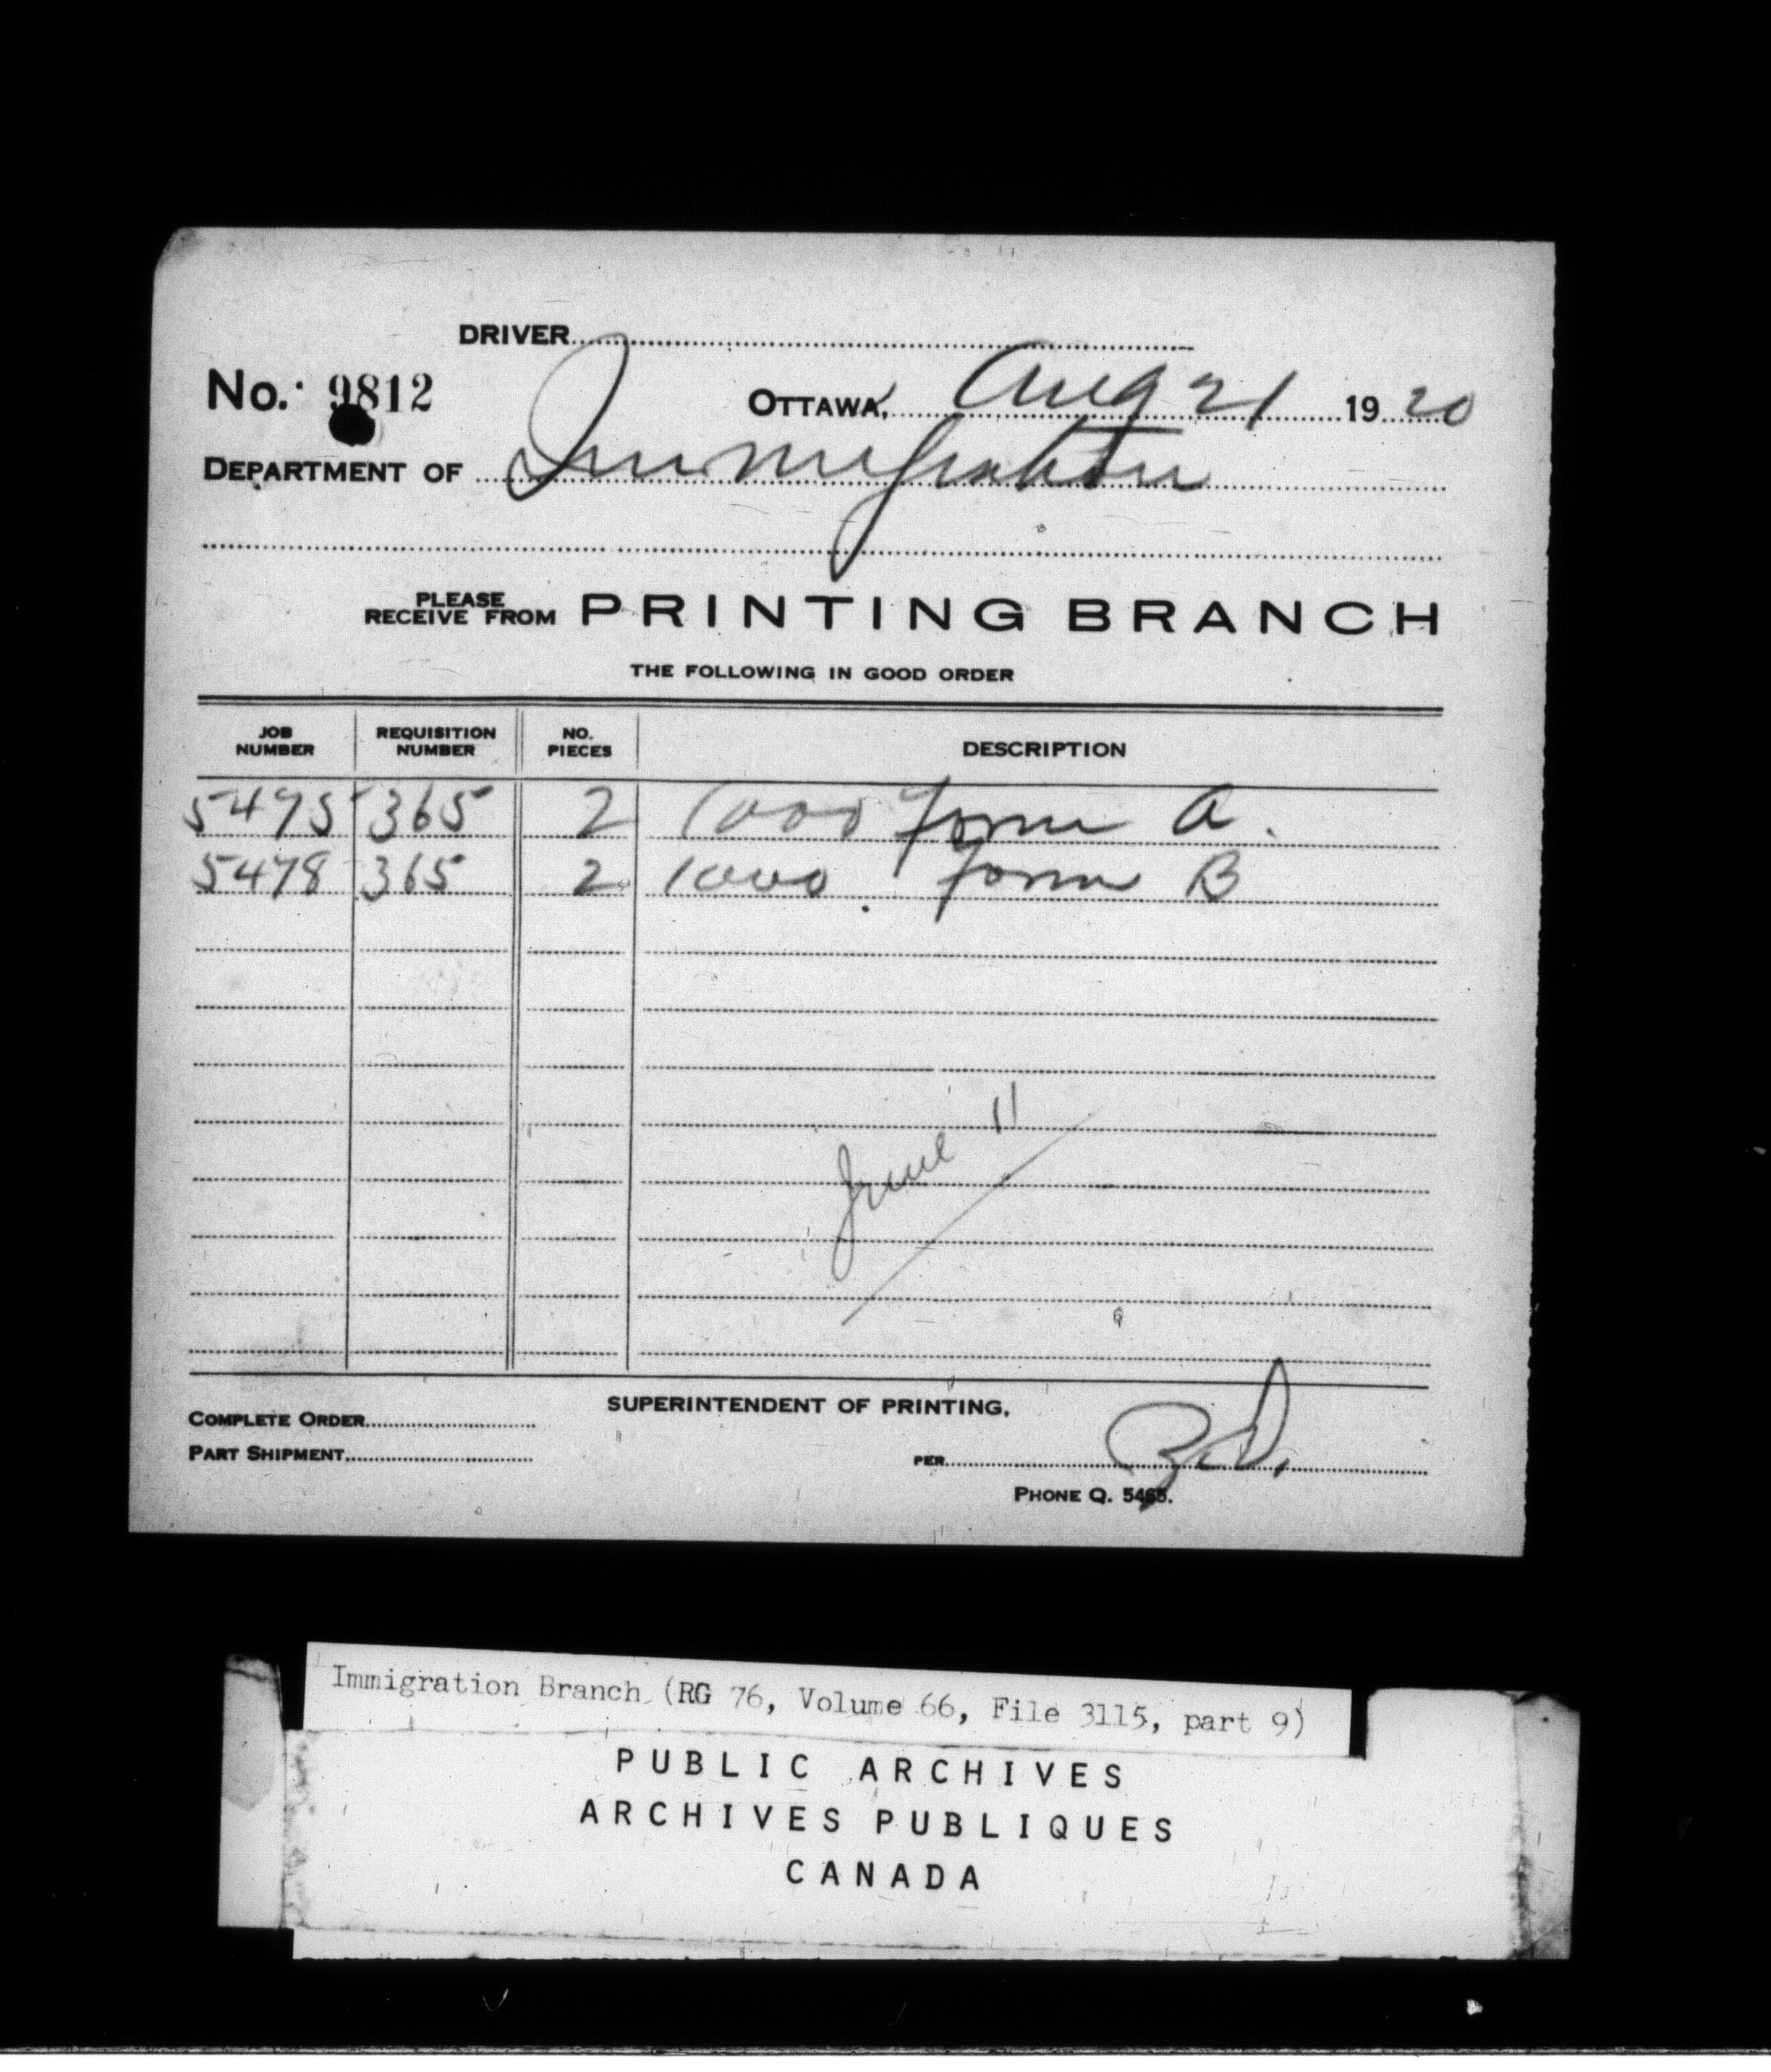 DRIVER
No. 9812 OTTAWA, Aug 21 1920
DEPARTMENT OF Immigration
PLEASE RECEIVE FROM PRINTING BRANCH
THE FOLLOWING IN GOOD ORDER
JOB NUMBER REQUISITION NUMBER NO. PIECES DESCRIPTION
5475 365 2 1000 Form A.
5478 365 2 1000 Form B
June 11
SUPERINTENDENT OF PRINTING,
COMPLETE ORDER
PART SHIPMENT
PER
PHONE Q. 5465.
Immigration Branch (RG 76, Volume 66, File 3115, part 9)
PUBLIC ARCHIVES
ARCHIVES PUBLIQUES
CANADA